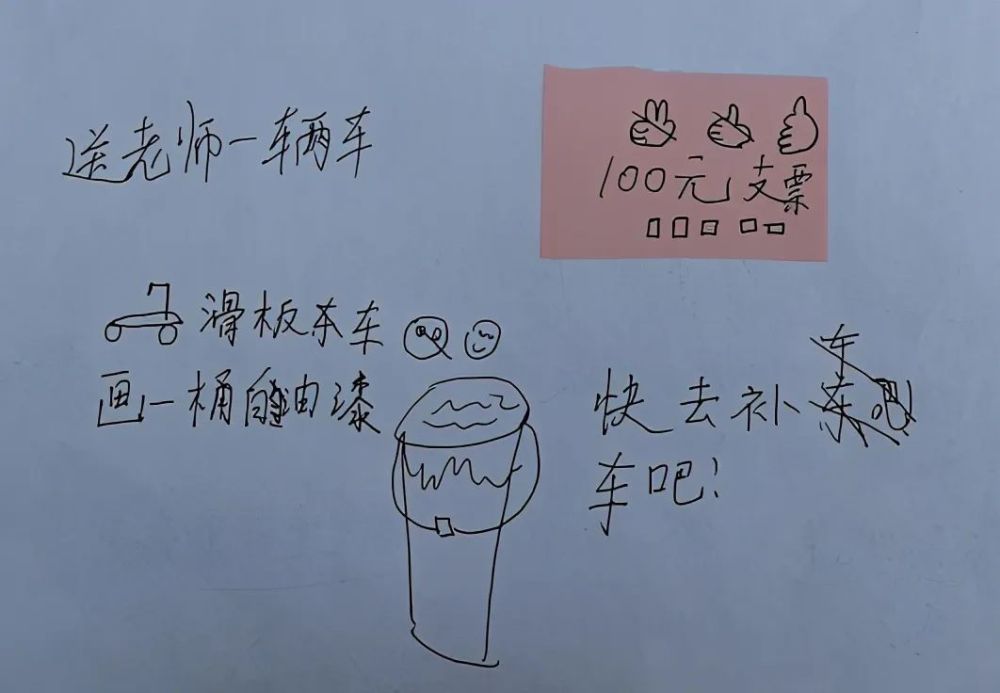 送老师一辆车
100元支票
滑板车车
画一桶白油漆
快去补
车吧!